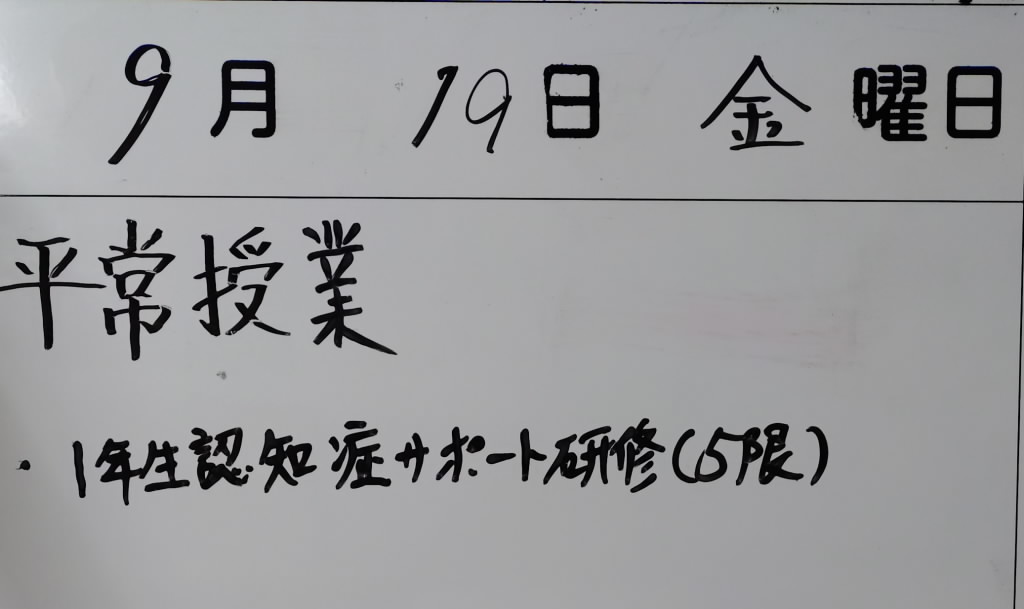 9月 19日 金曜日
平常授業
・1年生認知症サポート研修(5限)